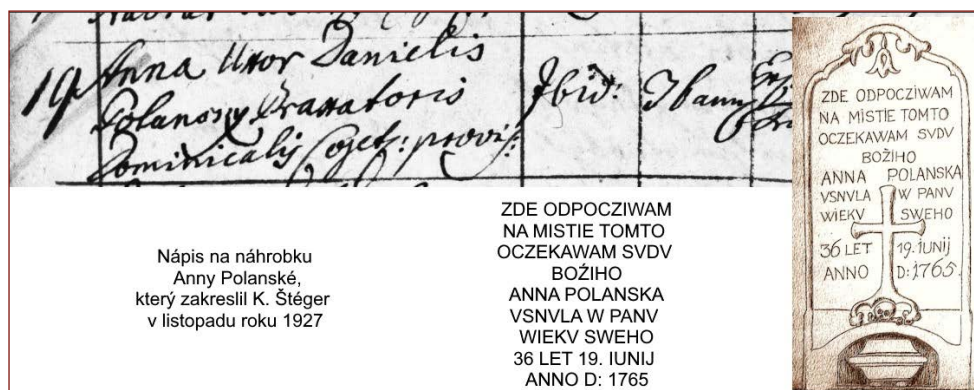 19 Anna Uxor Danielis
Polansky Braxatoris
Dominicalis Cojet: provis:
Ibid:
36 ann
Nápis na náhrobku
Anny Polanské,
který zakreslil K. Štéger
v listopadu roku 1927
ZDE ODPOCZIWAM
NA MISTIE TOMTO
OCZEKAWAM SVDV
BOŹIHO
ANNA POLANSKA
VSNVLA W PANV
WIEKV SWEHO
36 LET 19. IUNIJ
ANNO D: 1765
ZDE ODPOCZIWAM
NA MISTIE TOMTO
OCZEKAWAM SVDV
BOŽIHO
ANNA POLANSKA
VSNVLA W PANV
WIEKV SWEHO
36 LET 19. IUNIJ
ANNO D: 1765